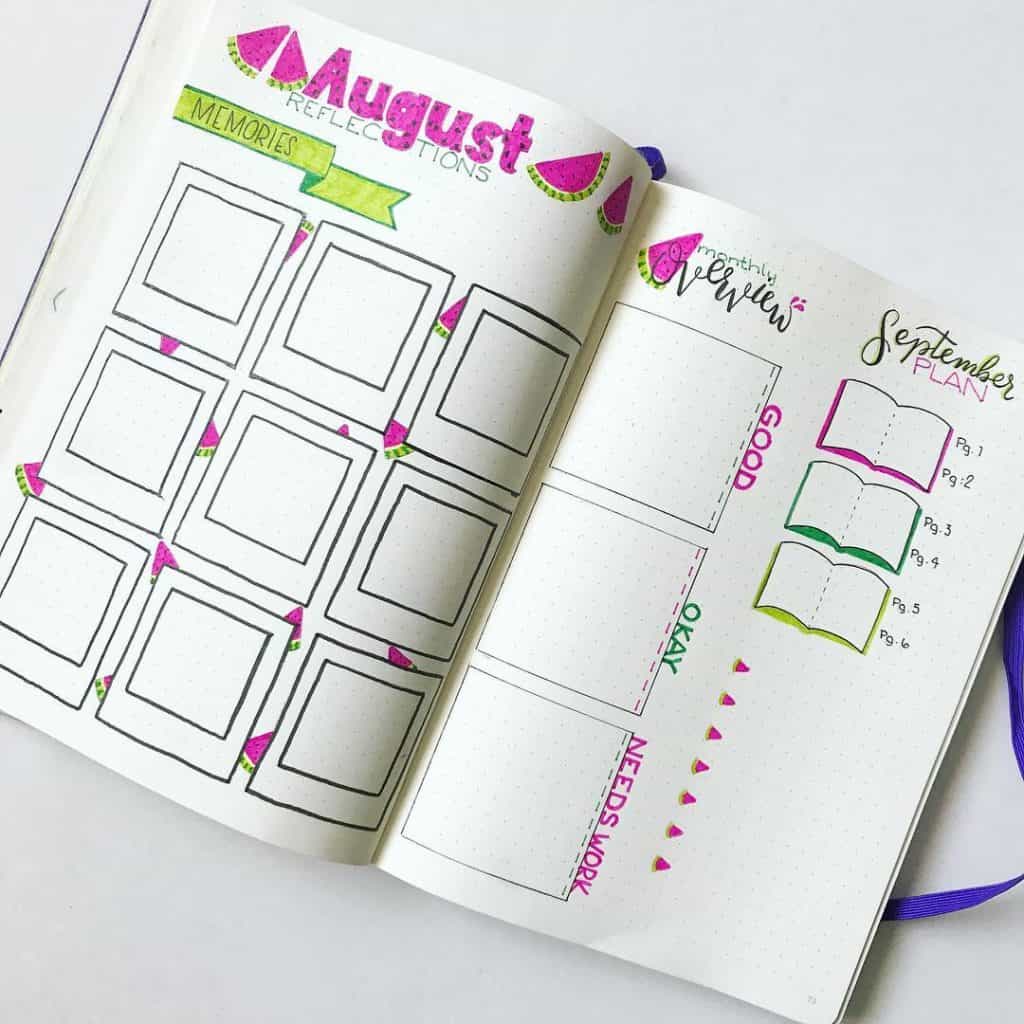 August
REFLECTIONS
MEMORIES
monthly
Overview
GOOD
OKAY
NEEDS WORK
September
PLAN
Pg. 1
Pg. 2
Pg. 3
Pg. 4
Pg. 5
Pg. 6